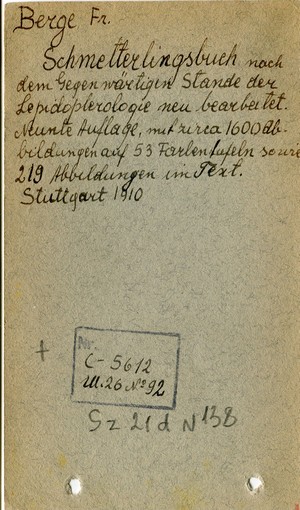 Berge Fr.
Schmetterlingsbuch nach
dem Gegenwärtigen Stande der
Lepidopterologie neu bearbeitet.
Neunte Auflage, mit zirca 1600 Ab-
bildungen auf 53 Farbentafeln sowie
219 Abbildungen im Text.
Stuttgart 1910
Nr.
C-5612
III.26 № 92
Sz 21 d N 138